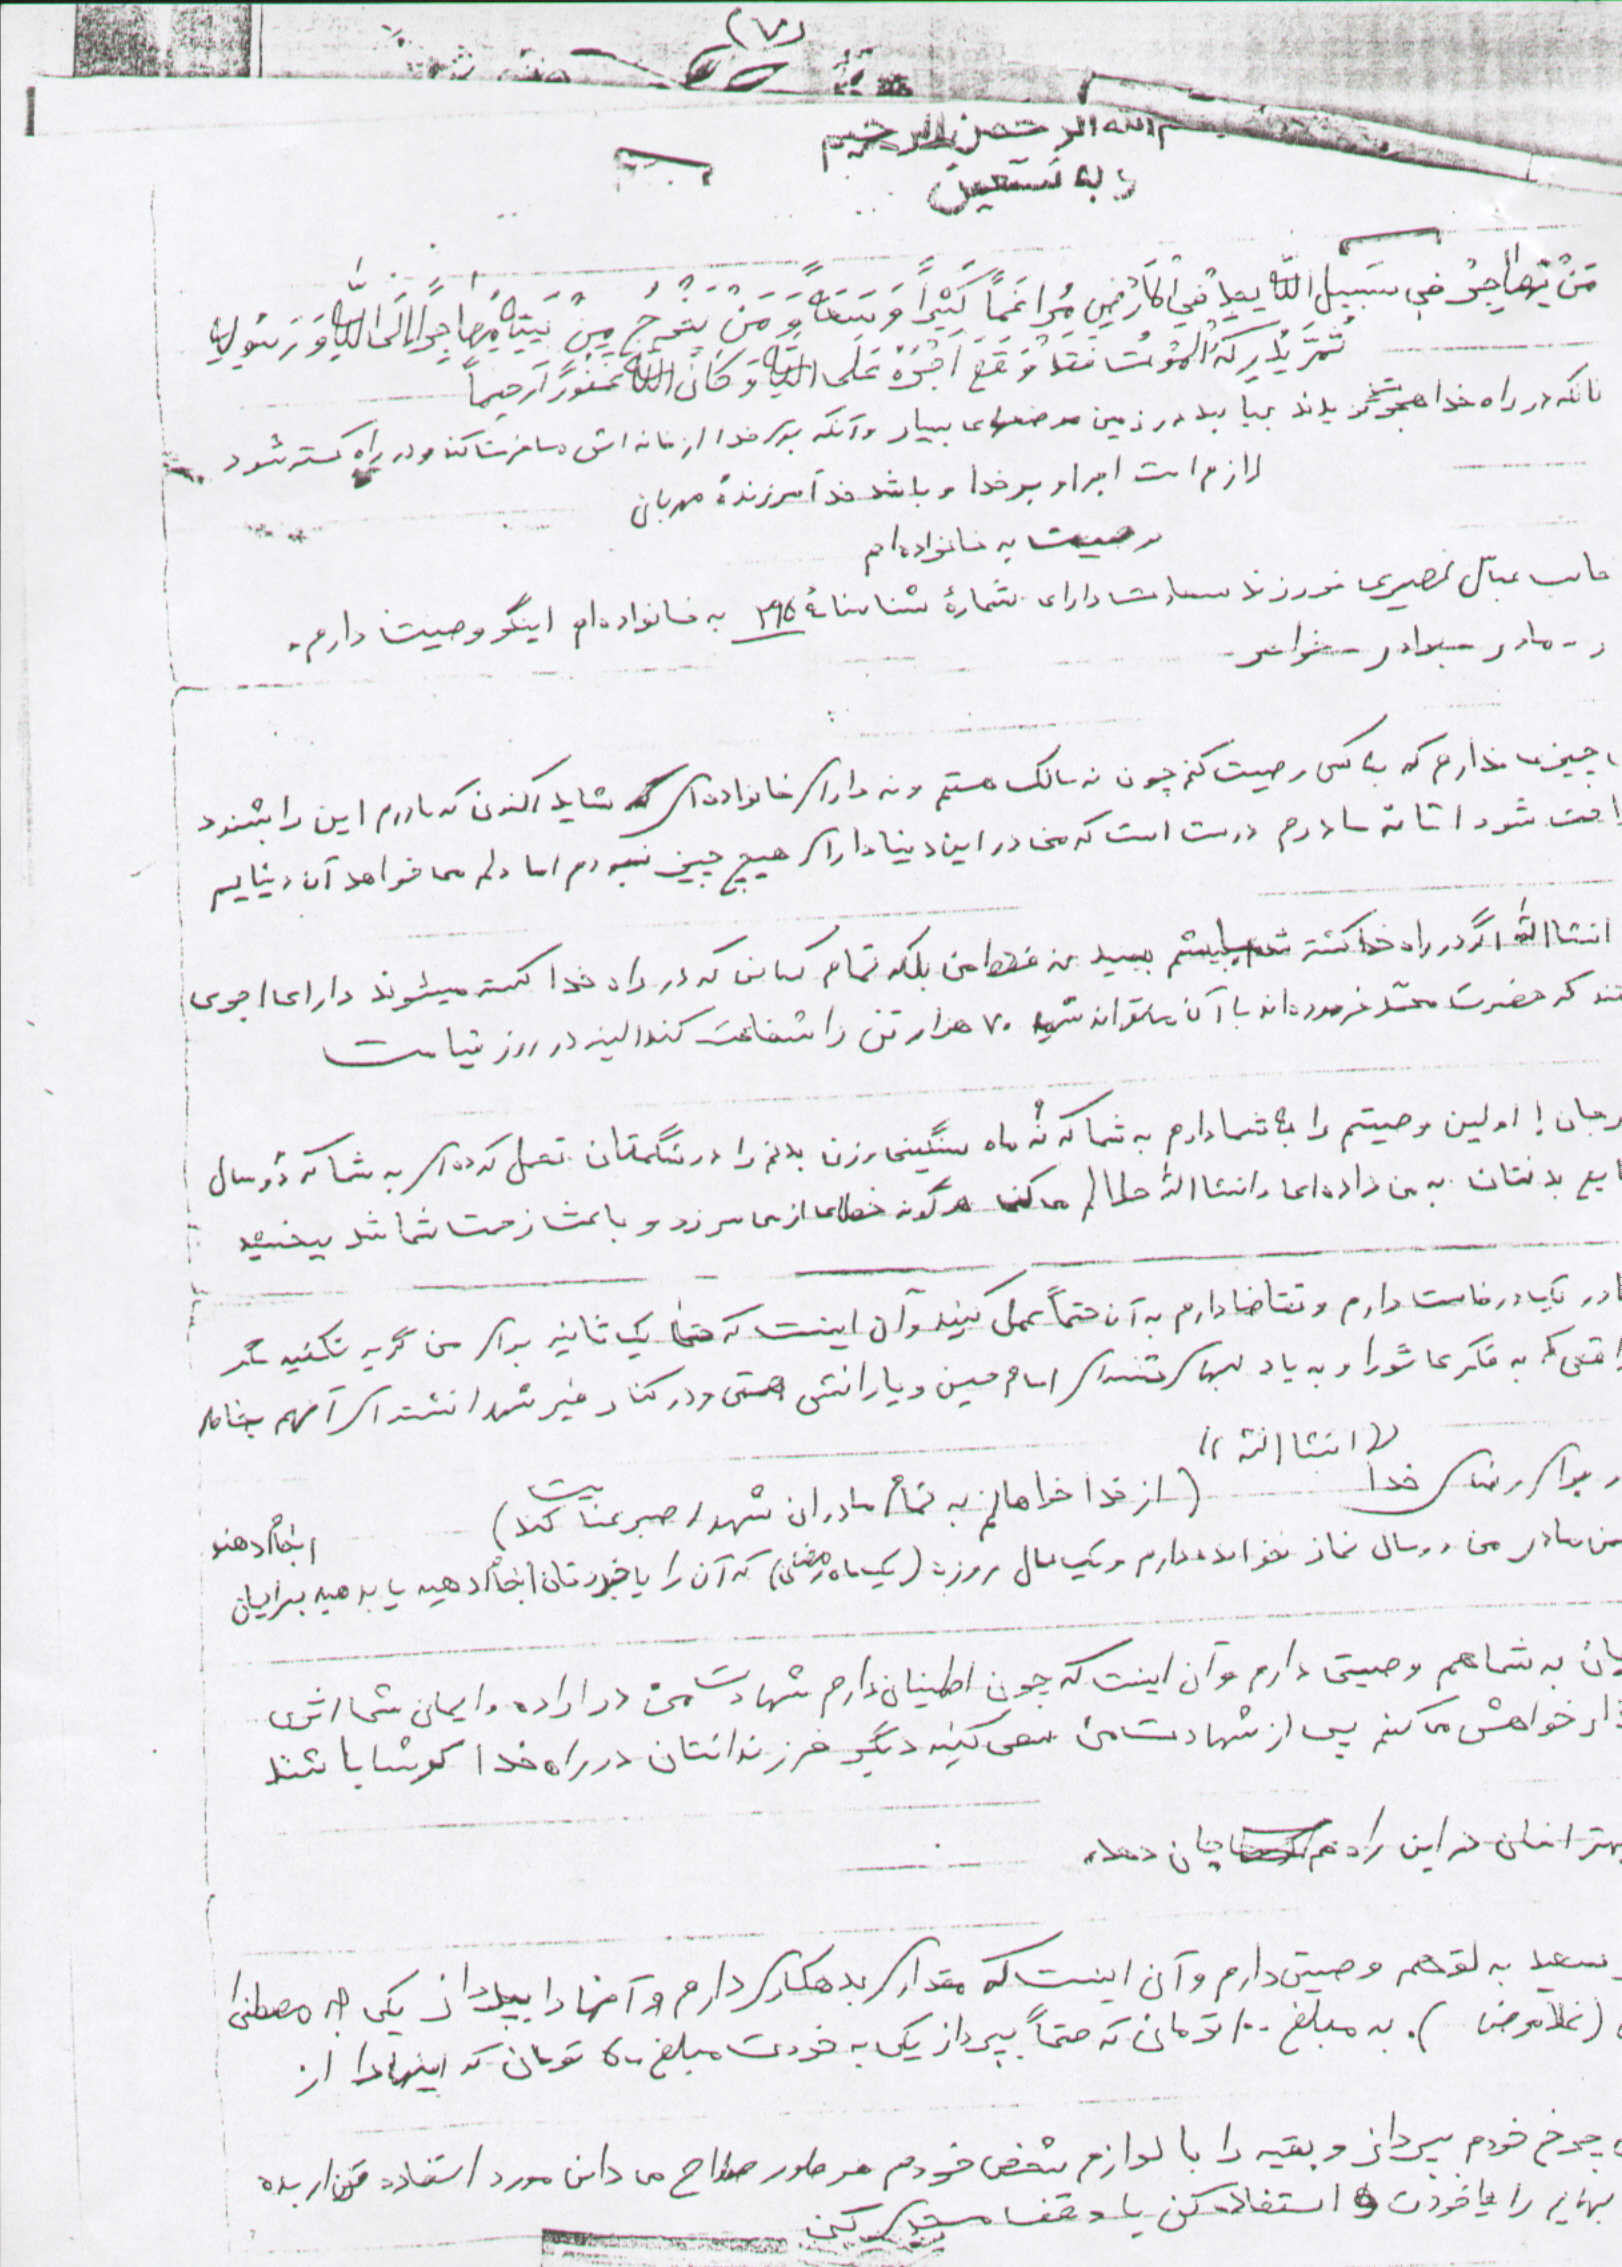 (۷)
بسم الله الرحمن الرحیم
و به نستعین
مَنْ یُهاجِرْ فی سَبیلِ اللّهِ یَجِدْ فِی الْاَرْضِ مُراغَماً کَثیراً وَ سَعَةً وَ مَنْ یَخْرُجْ مِنْ بَیْتِهِ مُهاجِراً اِلَی اللّهِ وَ رَسُولِهِ
ثُمَّ یُدْرِکْهُ الْمَوْتُ فَقَدْ وَقَعَ اَجْرُهُ عَلَی اللّهِ وَ کانَ اللّهُ غَفُوراً رَحیماً
نانکه در راه خدا هجرت بیابد در زمین موضعهای بسیار و آنکه برای خدا از خانه اش مسافرت کند و در راه کشته شود
لازم است اجر او بر خدا و باشد خدا آمرزندهٔ مهربان
وصیت به خانواده ام
جانب عباس نصیری فرزند سعادت دارای شمارهٔ شناسنامهٔ ۲۹۵ به خانواده ام اینگو وصیت دارم.
ر - مادر - برادر - خواهر -
چیزی ندارم که به کسی وصیت کنم چون نه مالک هستم و نه دارای خانواده ای که شاید اکنون که مادرم این را بشنود
راحت شود انشاءالله مادرم درست است که من در این دنیا دارای هیچ چیزی نبودم اما دلم می خواهد آن دنیایم
انشاالله اگر در راه خدا کشته نه فقط من بلکه تمام کسانی که در راه خدا کشته میشوند دارای اجری
تند که حضرت محمد فرموده اند با آن میتواند شهید ۷۰ هزار تن را شفاعت کند البته در روز قیامت
رجان! اولین وصیتم را به شما دارم به شما که نُه ماه سنگینی وزن بدنم را در شکمتان تحمل کرده ای به شما که دو سال
مایع بدنتان به من داده اید انشاالله حلالم می کنید هرگونه خطایی از من سر زد و باعث زحمت شما شد ببخشید
مادر یکبار درخواست دارم و تقاضا دارم به آن حتماً عمل کنید و آن اینست که حتی یک ثانیه برای من گریه نکنید مگر
وقتی که به فکر عاشورا و به یاد لبهای تشنه ی امام حسین و یارانش هستی و در کنار قبر شهدا نشسته ای آنهم بخاطر
((انشاالله))
ر برای رضای خدا (از خدا خواهانم به تمام مادران شهدا صبر عنایت کند)
ضمن مادر من دو سال نماز نخوانده دارم و یک سال روزه (یک ماه رمضان) که آن را یا خودتان انجام دهید یا بدهید برایتان انجام دهند
جان به شما هم وصیتی دارم و آن اینست که چون اطمینان دارم شهادت من در اراده و ایمان شما اثری
ذارد خواهش می کنم پس از شهادت من سعی کنید دیگر فرزندانتان در راه خدا کوشا باشند
بهتر انسان در این راه جان دهد.
سعید به تو هم وصیتی دارم و آن اینست که مقداری بدهکاری دارم و آنها را بپرداز یکی به مصطفی
(غلامرضا ). به مبلغ ۱۰۰ تومان که حتماً بپرداز یکی به خودت مبلغ ۵۰ تومان که اینها را از
چرخ خودم بپرداز و بقیه را با لوازم شخصی خودم هر طور صلاح می دانی مورد استفاده قرار بده
بهایم را یا خودت استفاده کن یا وقف مسجدی کنی